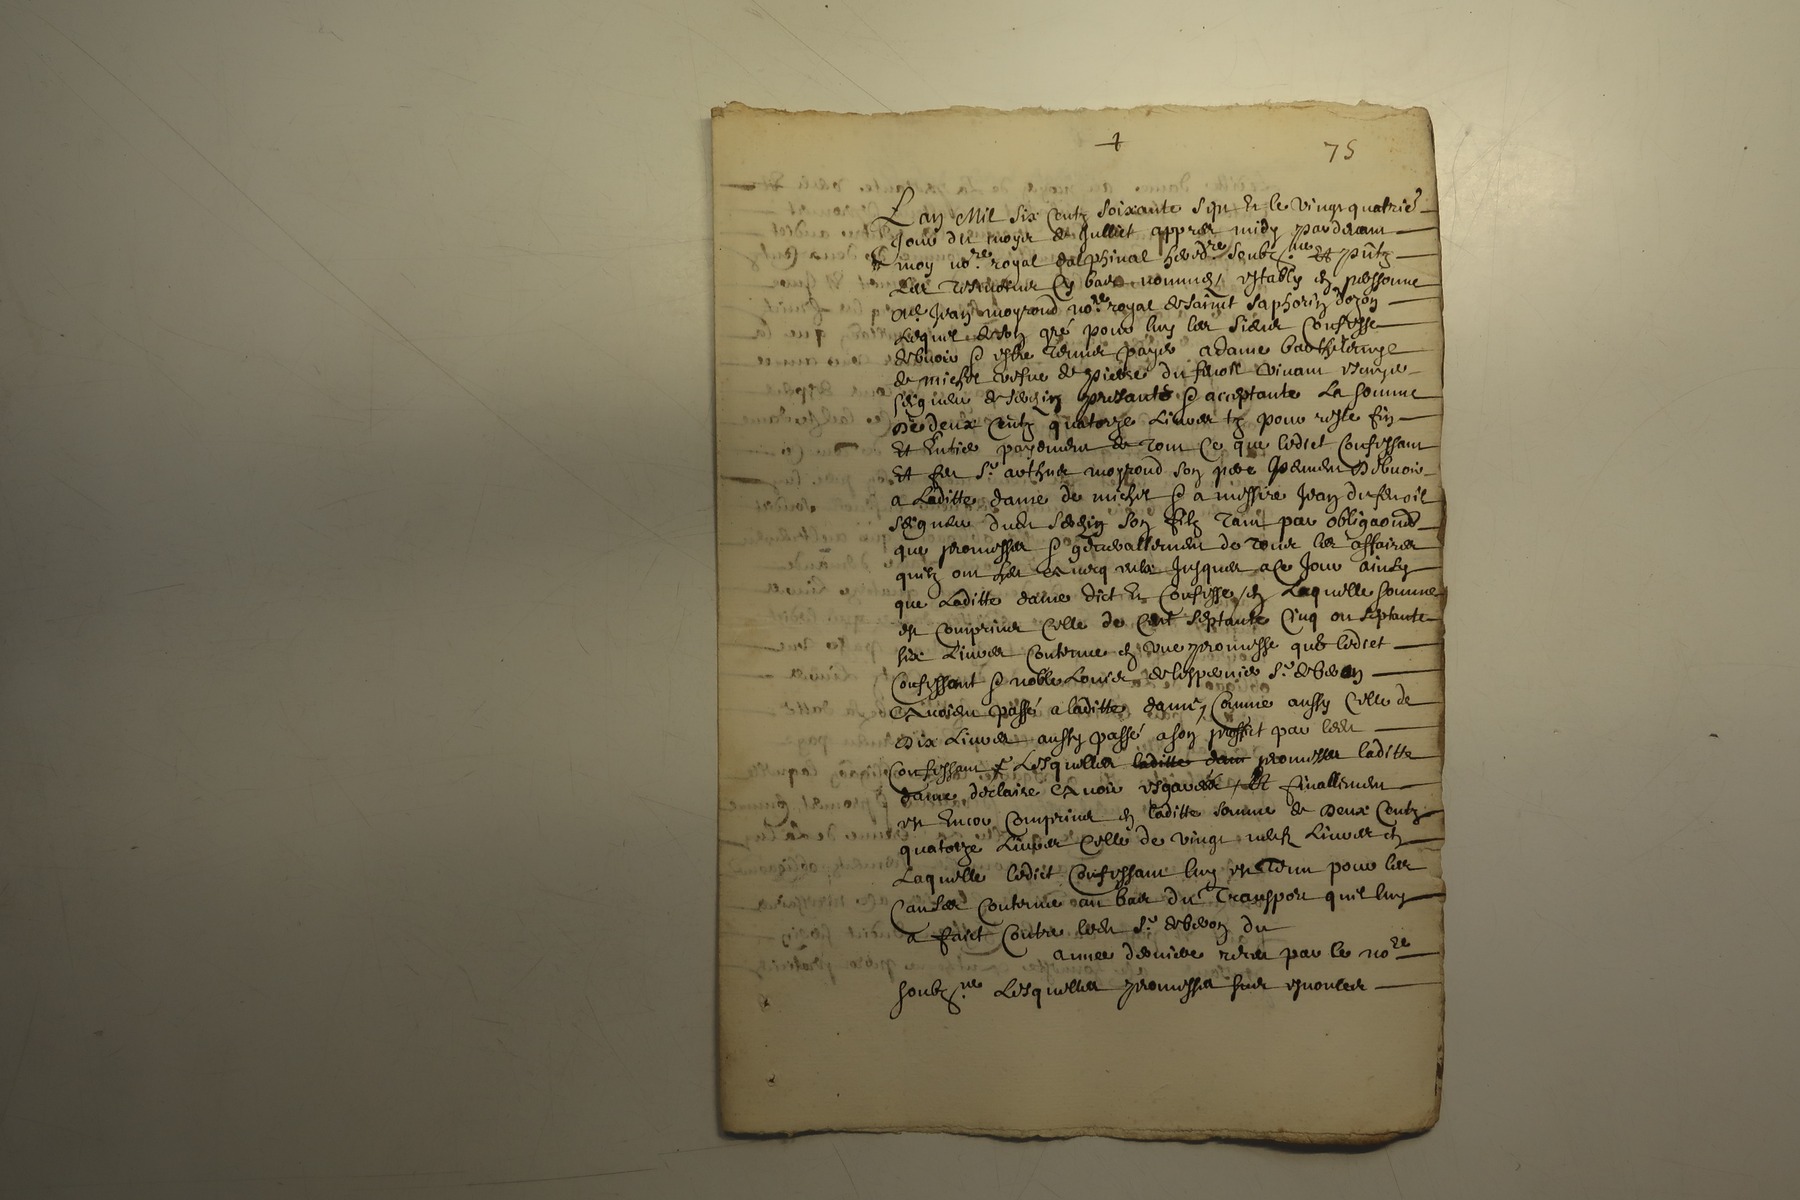 75
Lan Mil six centz soixante sept et le vingt quatrie
Jour du moys de Jullet appres midy par devant
moy no.re royal dalphinal hered.re soubz.ne et pntz
les tesmoins cy bas nommes estably en personne
Me Jean moyroud no.re royal de saint saphorin dozon
lequel de son gré pour luy les siens confesse
debvoir & estre tenu payer a dame
de michel vefve de pierre du fenoil vivant escuyer
seigneur de serezin presante & acceptante la somme
de deux centz quatorze livres tz pour reste fin
et entier payement de tout ce que ledict confessant
et feu Sr. arthur moyroud son pere peuvent debvoir
a laditte dame de michel & a messire Jean du fenoil
seigneur dudt serezin son filz tant par obliga͠ons
que promesses & generallement de tous les affaires
quilz ont heu avecq eulx Jusques a ce Jour ainsy
que laditte dame dict et confesse en laquelle somme
est comprinse celle de cent septante cinq ou septante
six livres contenue en une promesse que ledict
confessant & noble Louis de lespervier Sr.
avoient passé a laditte dame, comme aussy celle de
dix livres aussy passé a son proffit par ledt
confessant lesquelles laditte dame promesses laditte
dame declaire avoir esgarées, et finallement
est encor comprinse en laditte somme de deux centz
quatorze livres celle de vingt neuf livres en
laquelle ledict confessant luy est tenu pour les
causes contenues au bas du transport quil luy
a faict contre ledt Sr. du
annee derniere receu par le no.re
soubz.ne lesquelles promesses sus enoncees